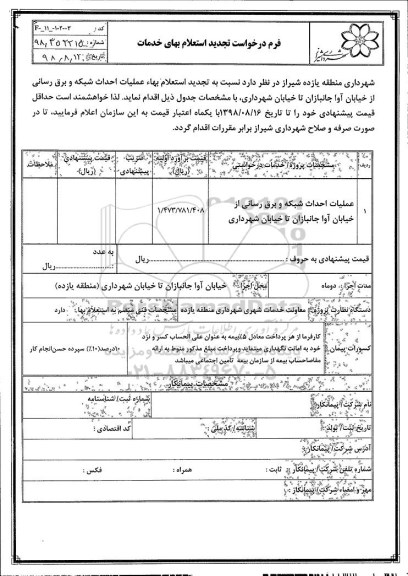 فرم درخواست تجدید استعلام بهای خدمات
کد: F-11-1-2-03
شماره: 98,352215
تاریخ: 98,8,12
شهرداری منطقه یازده شیراز در نظر دارد نسبت به تجدید استعلام بهاء عملیات احداث شبکه و برق رسانی
از خیابان آوا جانبازان تا خیابان شهرداری، با مشخصات جدول ذیل اقدام نماید. لذا خواهشمند است حداقل
قیمت پیشنهادی خود را تا تاریخ ۱۳۹۸/۰۸/۱۶ با یکماه اعتبار قیمت به این سازمان اعلام فرمایید، تا در
صورت صرفه و صلاح شهرداری شیراز برابر مقررات اقدام گردد.
ردیف مشخصات پروژه/ خدمات درخواستی قیمت برآورد اولیه (ریال) ضریب پیشنهادی قیمت پیشنهادی (ریال) ملاحظات
۱ عملیات احداث شبکه و برق رسانی از ۱/۴۷۳/۷۸۱/۴۰۸
خیابان آوا جانبازان تا خیابان شهرداری
قیمت پیشنهادی به حروف : ریال به عدد : ریال
مدت اجرا : دوماه محل اجرا : خیابان آوا جانبازان تا خیابان شهرداری (منطقه یازده)
دستگاه نظارت پروژه: معاونت خدمات شهری شهرداری منطقه یازده مشخصات فنی منضم به استعلام بها: دارد
کسورات پیمان: کارفرما از هر پرداخت معادل ۵٪بیمه به عنوان علی الحساب کسر و نزد
خود به امانت نگهداری مینماید وپرداخت مبلغ مذکور منوط به ارائه
مفاصاحساب بیمه از سازمان بیمه تامین اجتماعی میباشد
۱۰درصد(۱۰٪) سپرده حسن‌انجام کار
مشخصات پیمانکار
نام شرکت/ پیمانکار: شماره ثبت/ شناسنامه:
تاریخ ثبت/ تولد: شناسه/ کد ملی: کد اقتصادی :
آدرس شرکت/ پیمانکار:
شماره تلفن شرکت/ پیمانکار : ثابت : همراه : فکس :
مهر و امضاء شرکت/ پیمانکار :